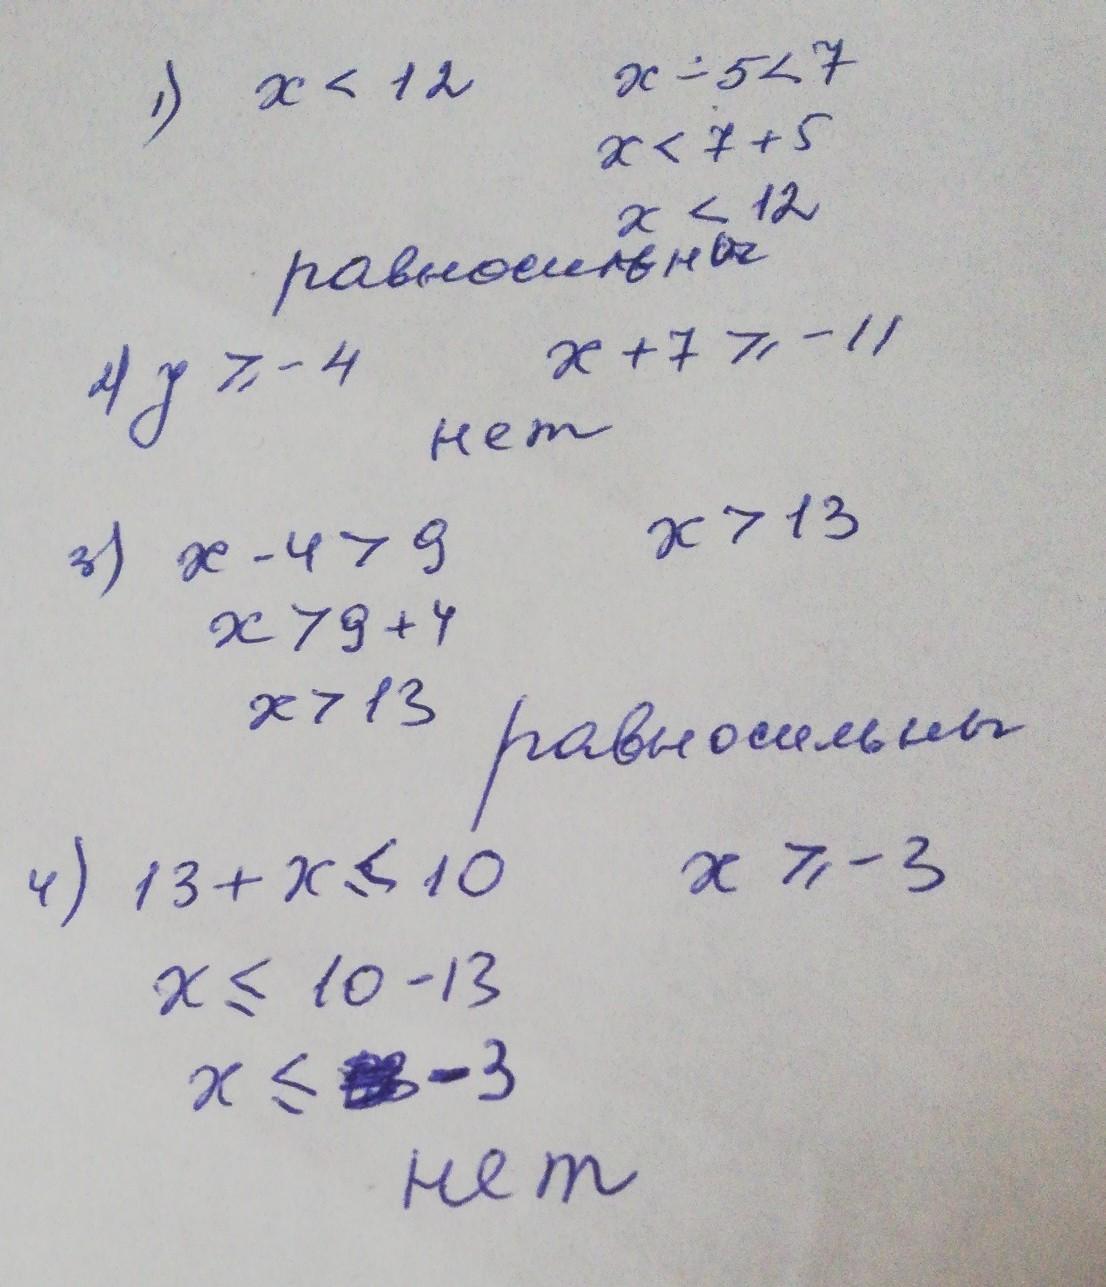 1) x < 12 x - 5 < 7
x < 7 + 5
x < 12
равносильны
2) y ⩾ -4 x + 7 ⩾ -11
нет
3) x - 4 > 9 x > 13
x > 9 + 4
x > 13
равносильны
4) 13 + x ⩽ 10 x ⩾ -3
x ⩽ 10 - 13
x ⩽ -3
нет